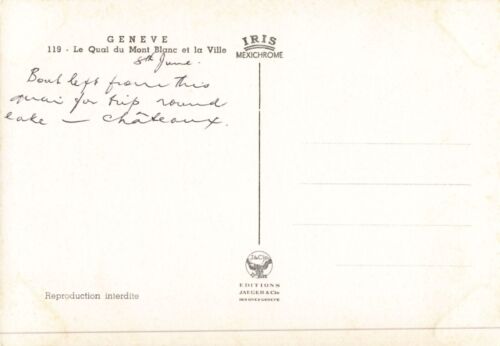 GENEVE
119 - Le Quai du Mont Blanc et la Ville
8th June.
Boat left from this
quai for trip round
lake — Châteaux.
IRIS
MEXICHROME
J&Cie
EDITIONS
JAEGER & Cie
Reproduction interdite